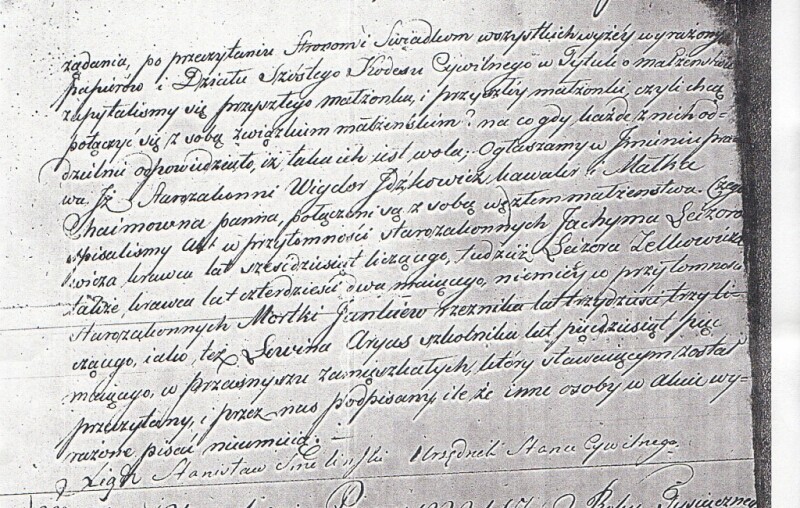 żądania, po przeczytaniu Stronom i Swiadkom wszystkich wyżéy wyrażonych
papierów i Działu Szóstego Kodexu Cywilnego w Tytule o małżeństwie
zapytaliśmy się przyszłego małżonka, i przyszłéy małżonki, czyli chcą
połączyć się z sobą związkiem małżeńskim? na co gdy każde z nich od-
dzielnie odpowiedziało, iż taka ich iest wola, Ogłaszamy w Jmieniu pra-
wa, Jż Starozakonni Wigdor Jckowicz kawaler i Małka
Chaimowna panna, połączeni są z sobą węzłem małżeństwa. Czego
spisaliśmy Akt w przytomności starozakonnych Jachyma Leizoro
wicza krawca lat sześćdziesiąt liczącego, tudzież Leizora Zelkowicza
także krawca lat czterdzieści dwa maiącego, niemniéy w przytomności
Starozakonnych Mortki rzeznika lat trzydzieści trzy li-
czącego, iako też Lewina Aryas szkolnika lat pięćdziesiąt pięć
maiącego, w Przasnyszu zamieszkałych, który stawaiącym został
przeczytany, i przez nas podpisany, ile że inne osoby w Akcie wy-
rażone pisać nieumieią. —
Stanisław Urzędnik Stanu Cywilnego
Roku Tysiącznego